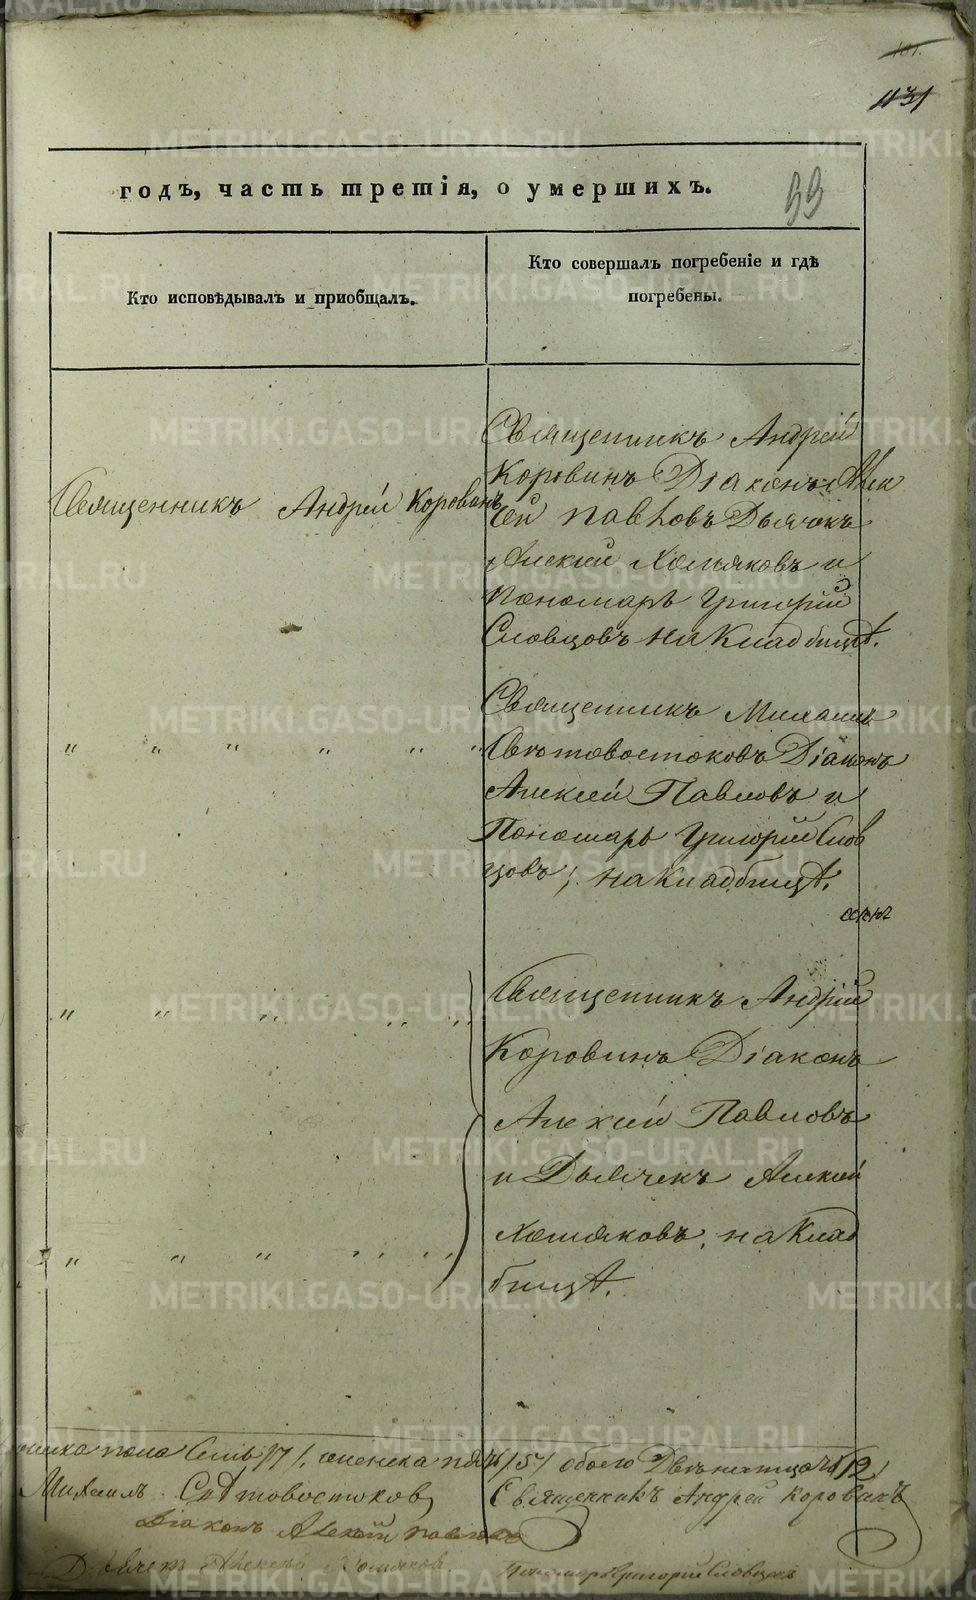 101.
1131
годъ, часть третія, о умершихъ.
99
Кто исповѣдывалъ и приобщалъ.
Кто совершалъ погребеніе и гдѣ
погребены.
Священникъ Андрей Коровинъ
Священникъ Андрей
Коровинъ Діаконъ Алек
сѣй Павловъ Дьячокъ
Алексій Хомяковъ и
Пономарь Григорій
Словцовъ на Кладбищѣ.
" " " " " "
Священникъ Михаилъ
Свѣтовостоковъ Діаконъ
Алексій Павловъ и
Пономарь Григорій Слов
цовъ, на Кладбищѣ.
" " " " "
Священникъ Андрій
Коровинъ Діаконъ
Алексій Павловъ
и Дьячекъ Алексій
Хомяковъ, на Клад
бищѣ.
" " " " " "
пола Семь /7/, женска пять /5/ обоего Двѣнатцать /12/
Михаилъ Свѣтовостоковъ
Священникъ Андрей Коровинъ
Діаконъ Алексій Павловъ
Дьячекъ Алексей Хомяковъ
Пономарь Григорій Словцовъ
METRIKI.GASO-URAL.RU